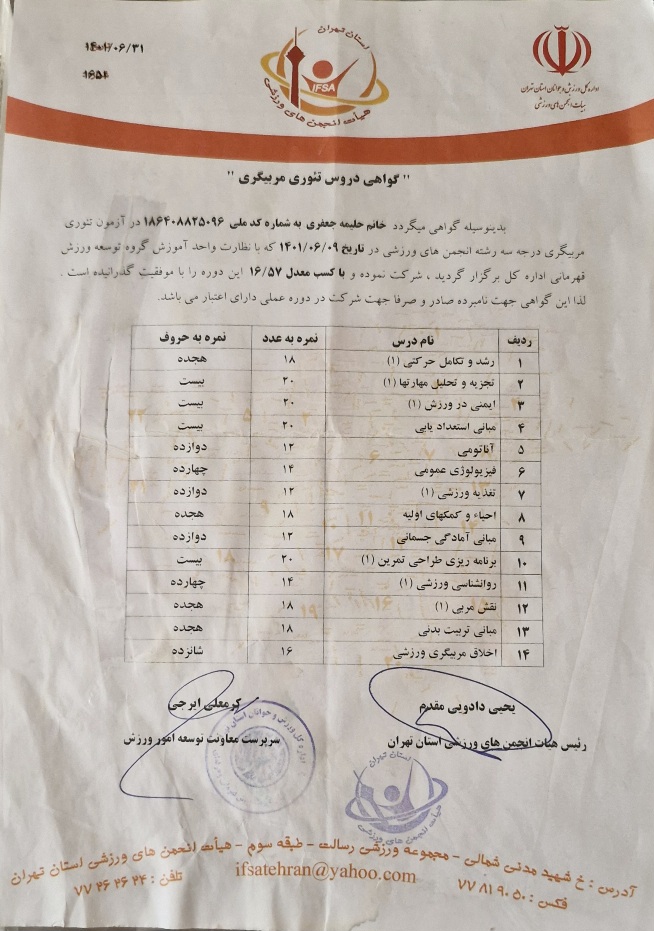 استان تهران
IFSA
هیأت انجمن های ورزشی
اداره کل ورزش و جوانان استان تهران
هیات انجمن های ورزشی
۱۴۰۱/۰۶/۳۱
" گواهی دروس تئوری مربیگری "
بدینوسیله گواهی میگردد خانم حلیمه جعفری به شماره کد ملی ۱۸۶۴۰۸۸۲۵۰۹۶ در آزمون تئوری
مربیگری درجه سه رشته انجمن های ورزشی در تاریخ ۱۴۰۱/۰۶/۰۹ که با نظارت واحد آموزش گروه توسعه ورزش
قهرمانی اداره کل برگزار گردید ، شرکت نموده و با کسب معدل ۱۶/۵۷ این دوره را با موفقیت گذرانیده است .
لذا این گواهی جهت نامبرده صادر و صرفا جهت شرکت در دوره عملی دارای اعتبار می باشد.
ردیف نام درس نمره به عدد نمره به حروف
۱ رشد و تکامل حرکتی (۱) ۱۸ هجده
۲ تجزیه و تحلیل مهارتها (۱) ۲۰ بیست
۳ ایمنی در ورزش (۱) ۲۰ بیست
۴ مبانی استعداد یابی ۲۰ بیست
۵ آناتومی ۱۲ دوازده
۶ فیزیولوژی عمومی ۱۴ چهارده
۷ تغذیه ورزشی (۱) ۱۲ دوازده
۸ احیاء و کمکهای اولیه ۱۸ هجده
۹ مبانی آمادگی جسمانی ۱۲ دوازده
۱۰ برنامه ریزی طراحی تمرین (۱) ۲۰ بیست
۱۱ روانشناسی ورزشی (۱) ۱۴ چهارده
۱۲ نقش مربی (۱) ۱۸ هجده
۱۳ مبانی تربیت بدنی ۱۸ هجده
۱۴ اخلاق مربیگری ورزشی ۱۶ شانزده
یحیی دادویی مقدم
رئیس هیات انجمن های ورزشی استان تهران
کرمعلی ایرجی
سرپرست معاونت توسعه امور ورزش
استان تهران
هیأت انجمن های ورزشی
آدرس : خ شهید مدنی شمالی - مجموعه ورزشی رسالت - طبقه سوم - هیأت انجمن های ورزشی استان تهران
فکس : ۷۷ ۸۱ ۹۰ ۵۰ ifsatehran@yahoo.com تلفن : ۷۷ ۲۶ ۲۶ ۲۴